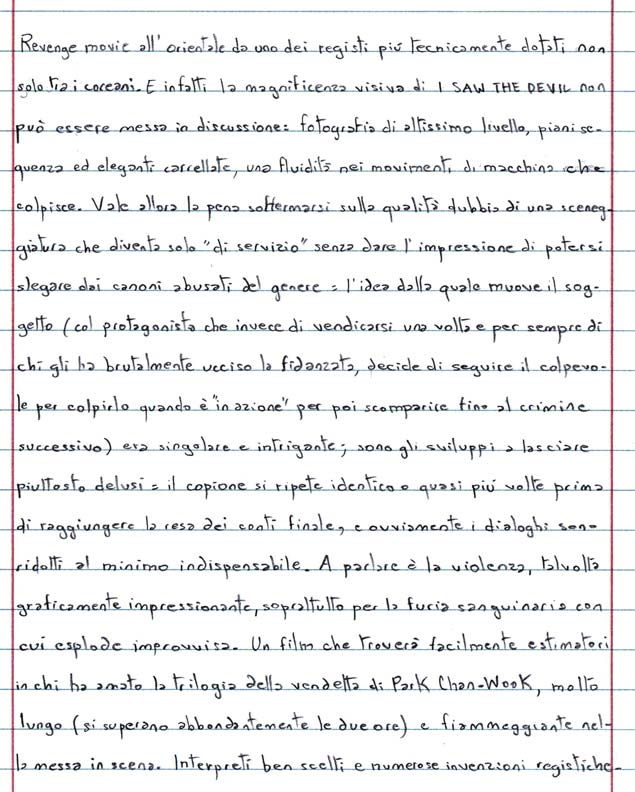 Revenge movie all'orientale da uno dei registi più tecnicamente dotati non
solo tra i coreani. E infatti la magnificenza visiva di I SAW THE DEVIL non
può essere messa in discussione: fotografia di altissimo livello, piani se-
quenza ed eleganti carrellate, una fluidità nei movimenti di macchina che
colpisce. Vale allora la pena soffermarsi sulla qualità dubbia di una sceneg-
giatura che diventa solo "di servizio" senza dare l'impressione di potersi
slegare dai canoni abusati del genere: l'idea dalla quale muove il sog-
getto (col protagonista che invece di vendicarsi una volta e per sempre di
chi gli ha brutalmente ucciso la fidanzata, decide di seguire il colpevo-
le per colpirlo quando è "in azione" per poi scomparire fino al crimine
successivo) era singolare e intrigante; sono gli sviluppi a lasciare
piuttosto delusi: il copione si ripete identico o quasi più volte prima
di raggiungere la resa dei conti finale, e ovviamente i dialoghi son-
ridotti al minimo indispensabile. A parlare è la violenza, talvolta
graficamente impressionante, soprattutto per la furia sanguinaria con
cui esplode improvvisa. Un film che troverà facilmente estimatori
in chi ha amato la trilogia della vendetta di Park Chan-Wook, molto
lungo (si superano abbondantemente le due ore) e fiammeggiante nel-
la messa in scena. Interpreti ben scelti e numerose invenzioni registiche.